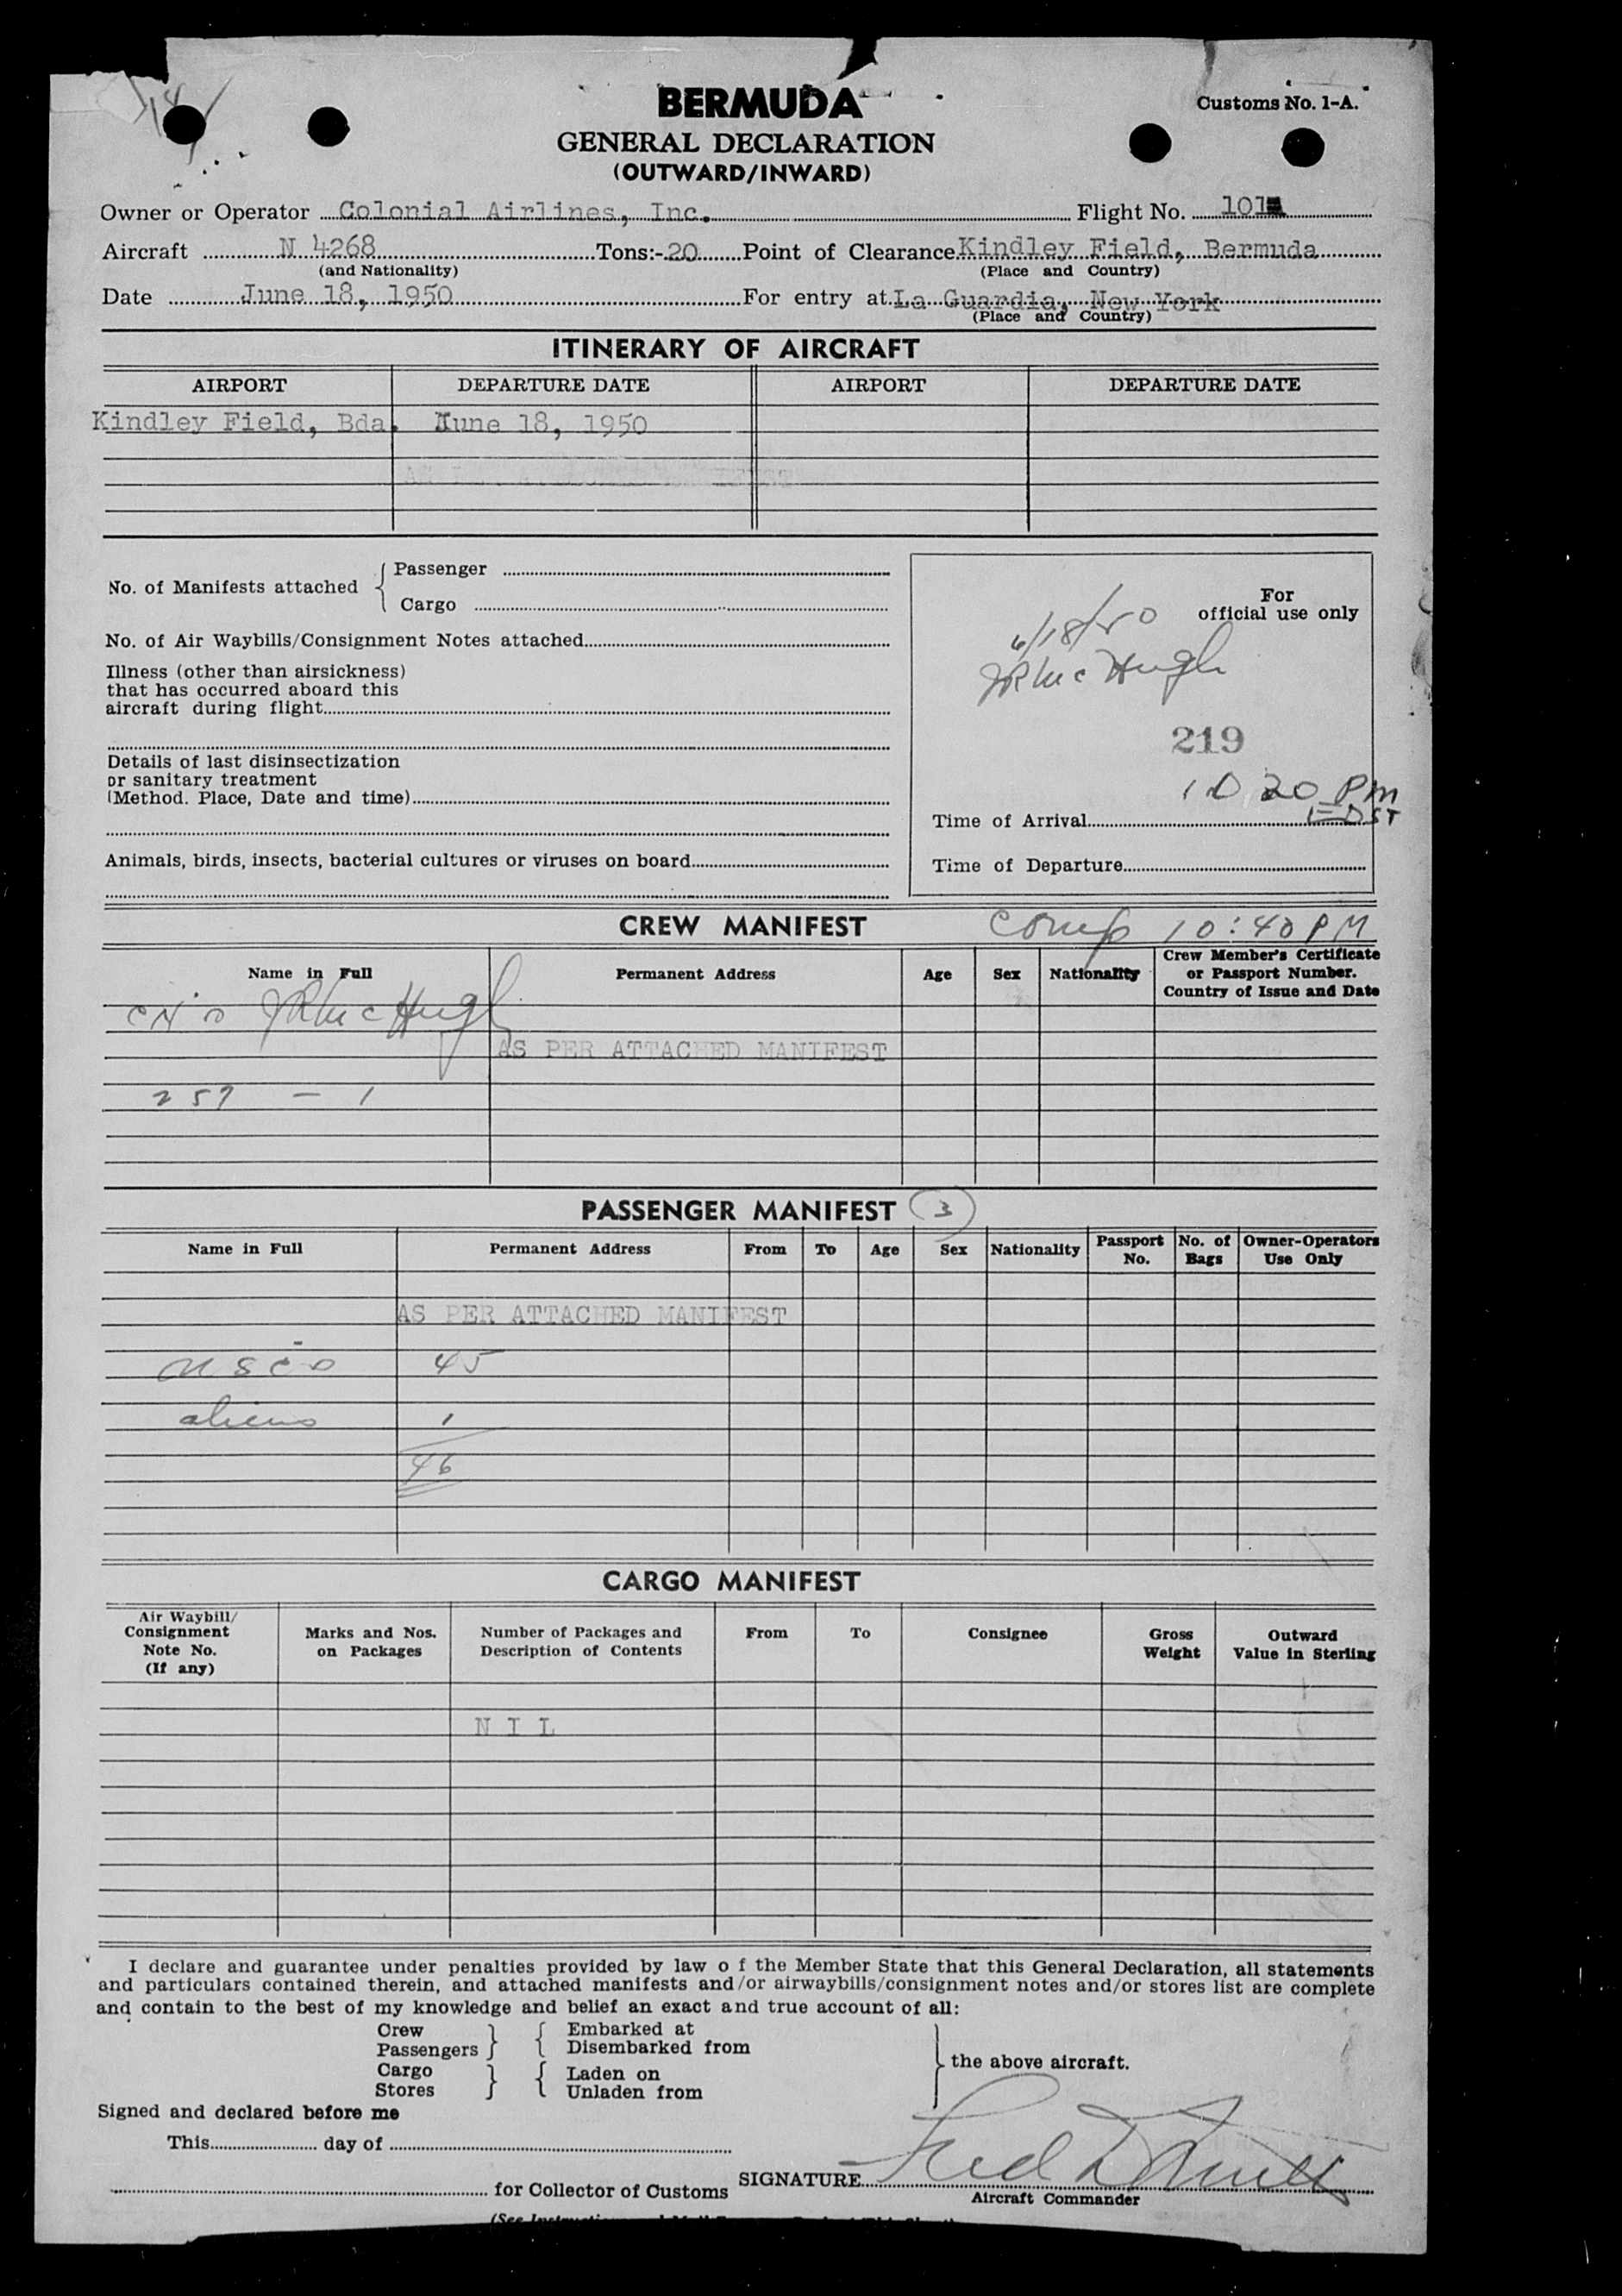 BERMUDA
Customs No. 1-A.
GENERAL DECLARATION
(OUTWARD/INWARD)
Owner or Operator Colonial Airlines, Inc. Flight No. 101
Aircraft N 4268 Tons:- 20 Point of Clearance Kindley Field, Bermuda
(and Nationality) (Place and Country)
Date June 18, 1950 For entry at La Guardia, New York
(Place and Country)
ITINERARY OF AIRCRAFT
AIRPORT DEPARTURE DATE AIRPORT DEPARTURE DATE
Kindley Field, Bda. June 18, 1950
No. of Manifests attached { Passenger
Cargo
For
official use only
6/18/50
JR McHugh
No. of Air Waybills/Consignment Notes attached
Illness (other than airsickness)
that has occurred aboard this
aircraft during flight
219
Details of last disinsectization
or sanitary treatment
(Method. Place, Date and time)
10 20 PM
EDST
Time of Arrival
Animals, birds, insects, bacterial cultures or viruses on board
Time of Departure
CREW MANIFEST Comp 10:40 PM
Name in Full Permanent Address Age Sex Nationality Crew Member's Certificate
or Passport Number.
Country of Issue and Date
JR McHugh
AS PER ATTACHED MANIFEST
257 — 1
PASSENGER MANIFEST 3
Name in Full Permanent Address From To Age Sex Nationality Passport No. No. of Bags Owner-Operators Use Only
AS PER ATTACHED MANIFEST
USCs 45
aliens 1
46
CARGO MANIFEST
Air Waybill/
Consignment
Note No.
(If any) Marks and Nos.
on Packages Number of Packages and
Description of Contents From To Consignee Gross
Weight Outward
Value in Sterling
N I L
I declare and guarantee under penalties provided by law o f the Member State that this General Declaration, all statements
and particulars contained therein, and attached manifests and/or airwaybills/consignment notes and/or stores list are complete
and contain to the best of my knowledge and belief an exact and true account of all:
Crew } { Embarked at
Passengers } { Disembarked from
} the above aircraft.
Cargo } { Laden on
Stores } { Unladen from
Signed and declared before me
This day of
for Collector of Customs SIGNATURE
Aircraft Commander